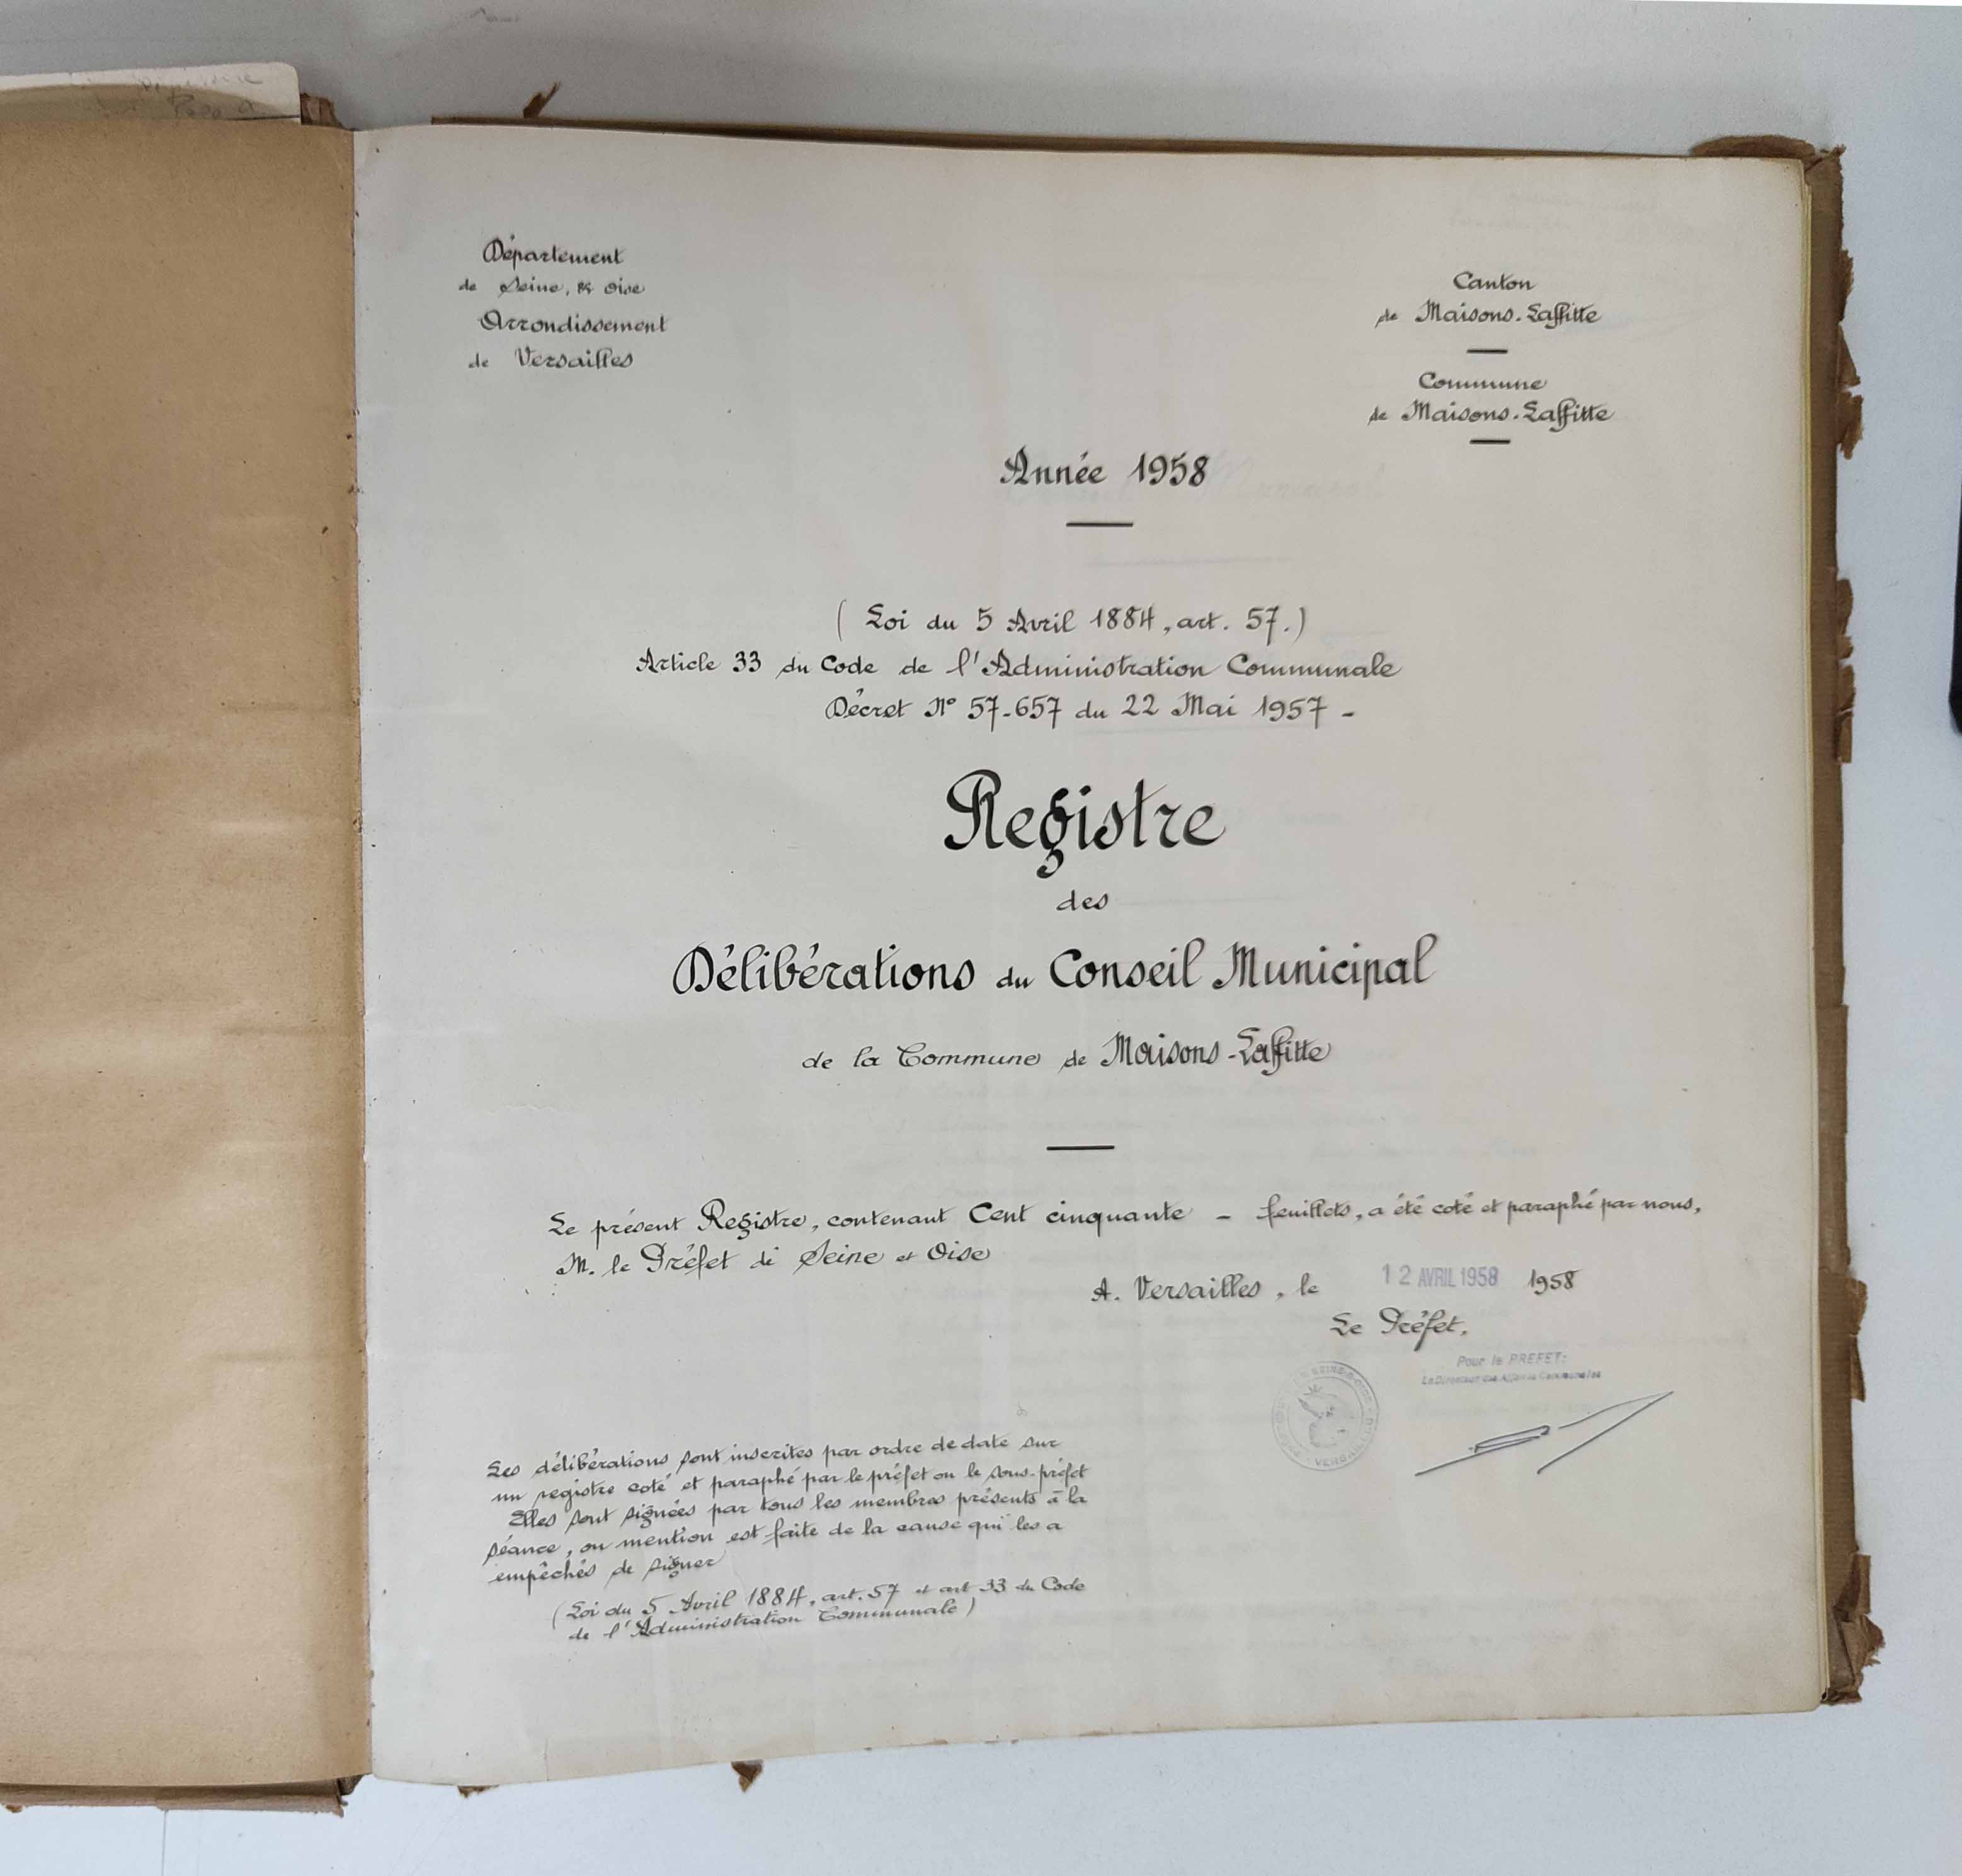 Département
de Seine & Oise
Arrondissement
de Versailles
Canton
de Maisons-Laffitte
Commune
de Maisons-Laffitte
Année 1958
(Loi du 5 Avril 1884, art. 57.)
Article 33 du Code de l'Administration Communale
Décret N° 57-657 du 22 Mai 1957 -
Registre
des
Délibérations du Conseil Municipal
de la Commune de Maisons-Laffitte
Le présent Registre, contenant Cent cinquante - feuillets, a été coté et paraphé par nous,
M. le Préfet de Seine et Oise
A. Versailles, le 12 AVRIL 1958 1958
Le Préfet,
Pour le PREFET:
Le Directeur des Affaires Communales
Les délibérations sont inscrites par ordre de date sur
un registre coté et paraphé par le préfet ou le sous-préfet
Elles sont signées par tous les membres présents à la
séance, ou mention est faite de la cause qui les a
empêchés de signer
(Loi du 5 Avril 1884, art. 57 et art 33 du Code
de l'Administration Communale)